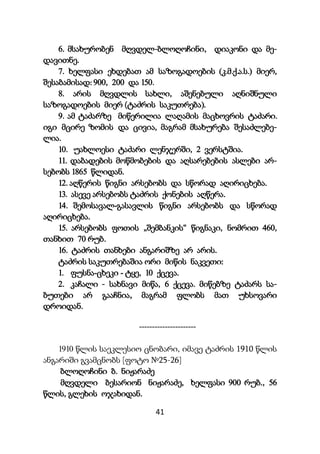 6. მსახურობენ მღვდელ-ბლოღოჩინი, დიაკონი და მე-
დავითნე.
7. ხელფასი ეხდებათ ამ საზოგადოების (კ.მ.ქ.ა.ს.) მიერ,
შესაბამისად: 900, 200 და 150.
8. არის მღვდლის სახლი, აშენებული აღნიშნული
საზოგადოების მიერ (ტაძრის საკუთრება).
9. ამ ტაძარზე მიწერილია ლაღამის მაცხოვრის ტაძარი.
იგი მცირე ზომის და ცივია, მაგრამ მსახურება შესაძლებე-
ლია.
10. უახლოესი ტაძარი ლენჯერში, 2 ვერსტშია.
11. დაბადების მოწმობების და აღსარებების ასლები არ-
სებობს 1865 წლიდან.
12. აღწერის წიგნი არსებობს და სწორად აღირიცხება.
13. ასევე არსებობს ტაძრის ქონების აღწერა.
14. შემოსავალ-გასავლის წიგნი არსებობს და სწორად
აღირიცხება.
15. არსებობს ფოთის „შემბანკის“ წიგნაკი, ნომრით 460,
თანხით 70 რუბ.
16. ტაძრის თანხები ანგარიშზე არ არის.
ტაძრის საკუთრებაშია ორი მიწის ნაკვეთი:
1. ფუსნა-ცხეკი - ტყე, 10 ქცევა.
2. კაჩალი - სახნავი მიწა, 6 ქცევა. მიწებზე ტაძარს სა-
ბუთები არ გააჩნია, მაგრამ ფლობს მათ უხსოვარი
დროიდან.
----------------------
1910 წლის საეკლესიო ცნობარი, იმავე ტაძრის 1910 წლის
ანგარიში გვამცნობს [ფოტო №25-26]
ბლოღოჩინი ბ. ნიჟარაძე
მღვდელი ბესარიონ ნიჟარაძე, ხელფასი 900 რუბ., 56
წლის, გლეხის ოჯახიდან.
41